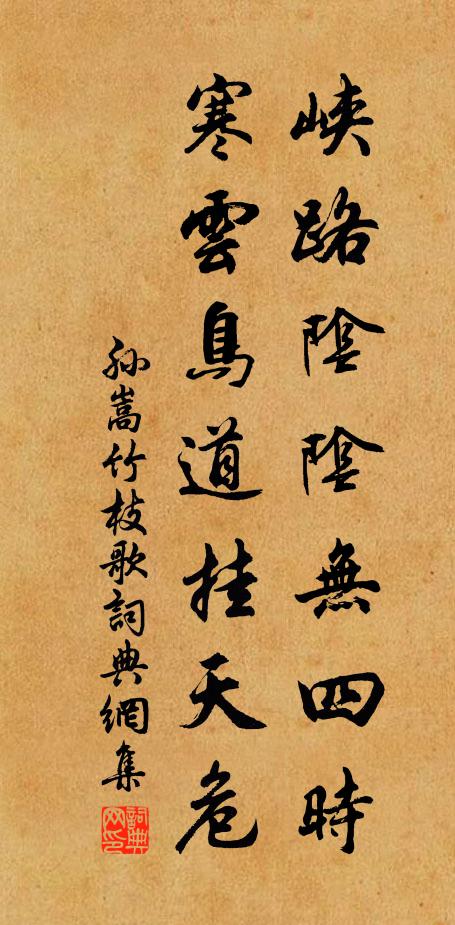 峽路陰陰無四時
寒雲鳥道挂天危
孙嵩竹枝歌詞典網集
詞典網印